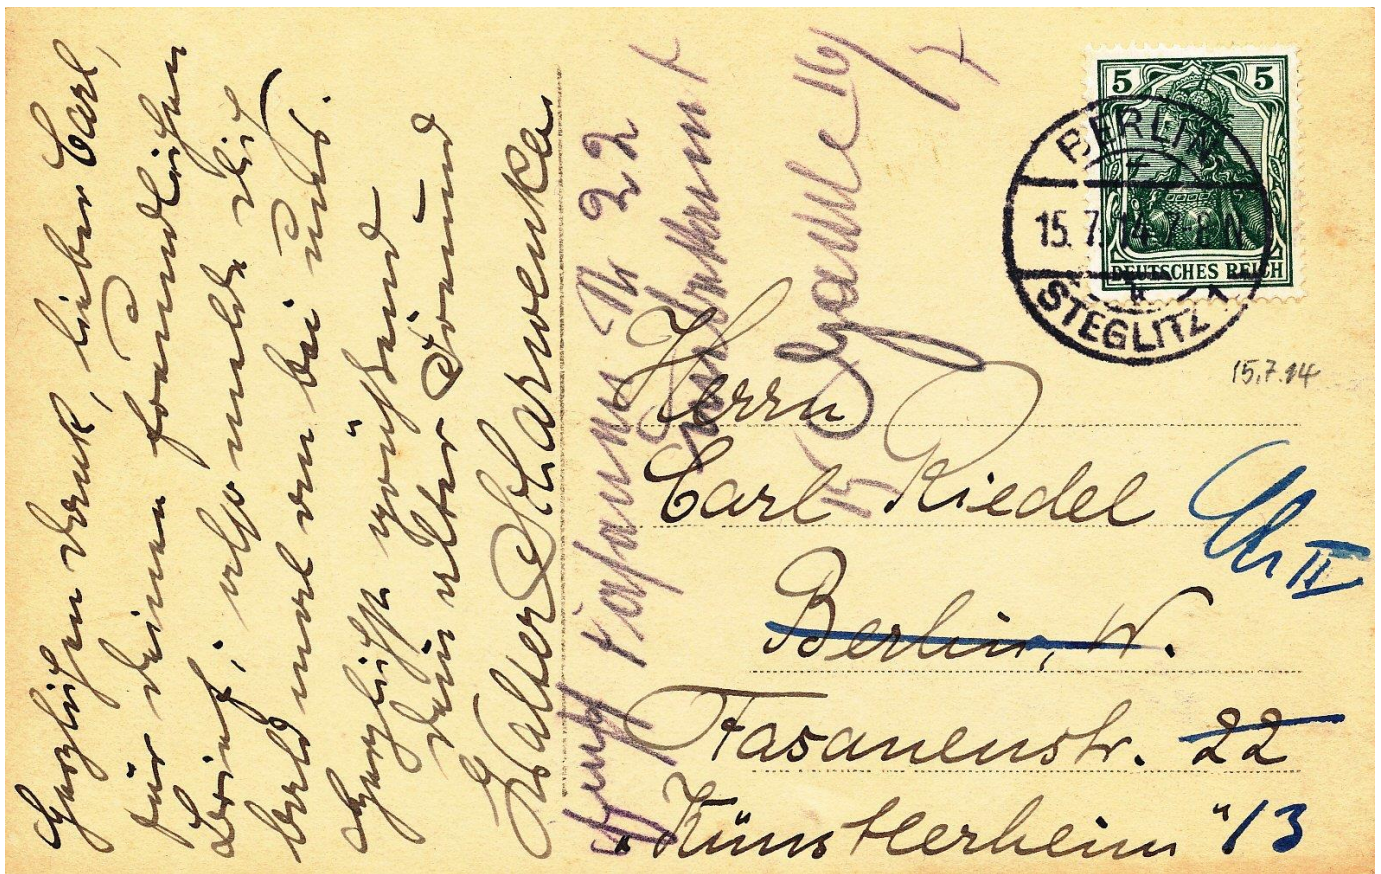 Herzlichen Dank, lieber Carl,
für deinen freundlichen
Brief; also melde dich
bald mal an bei uns.
Herzlichst grüßend
dein alter Freund
Walter Scharwenka
22
unbekannt
5 5
DEUTSCHES REICH
BERLIN
15.7.14.7-8N
STEGLITZ 1
15.7.14
Herrn
Carl Riedel
Berlin, W.
Fasanenstr. 22
"Künstlerheim" /3
II